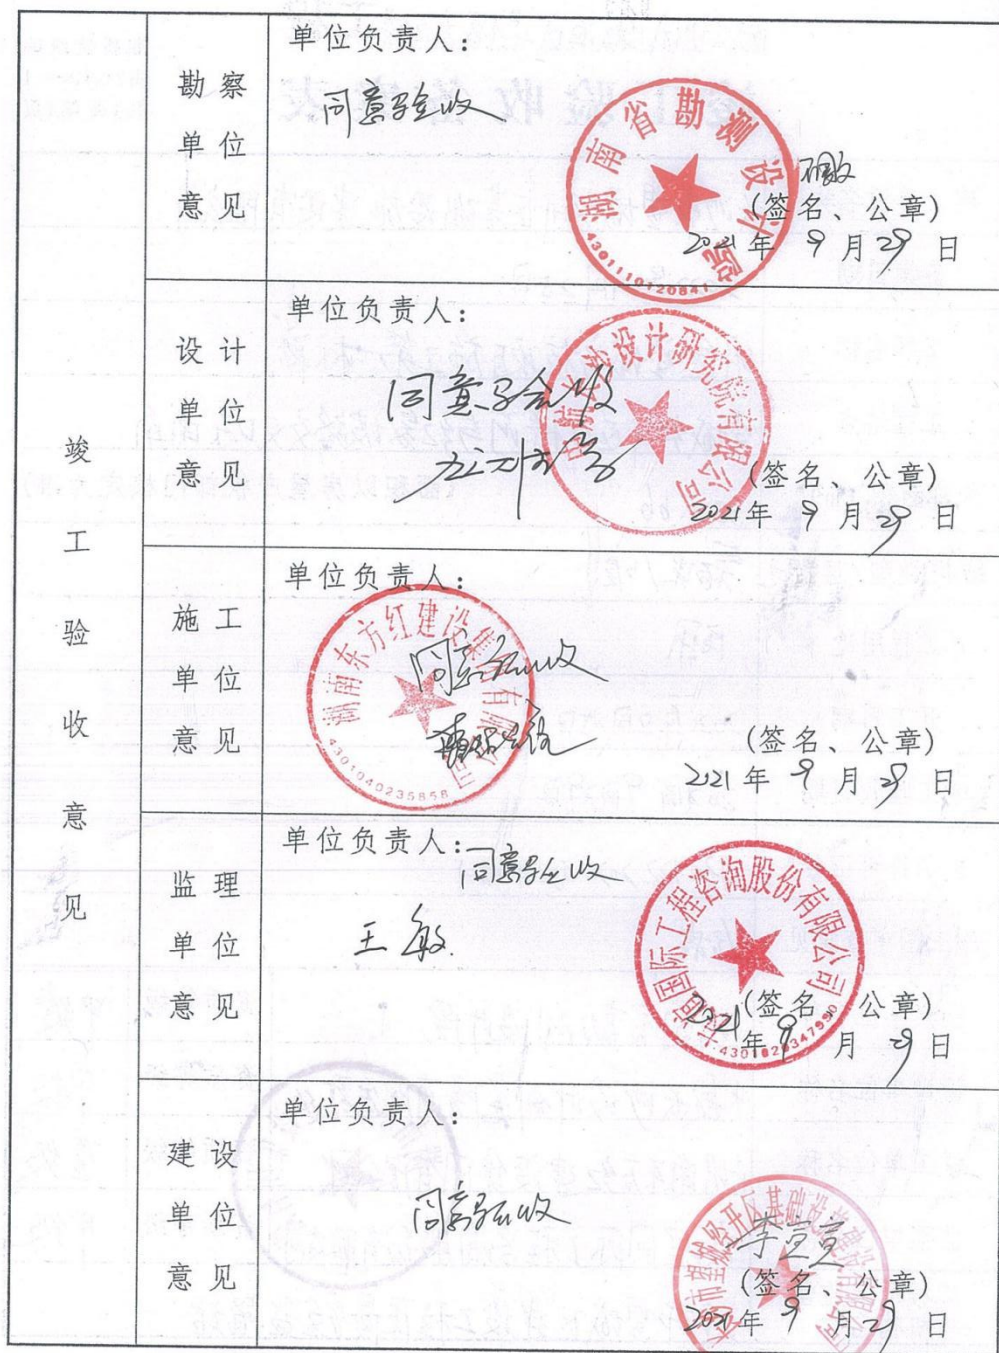 竣工验收意见
勘察单位意见
单位负责人:
同意验收
湖南省勘测设计院
4301110120841
(签名、公章)
2021年9月29日
设计单位意见
单位负责人:
同意验收
长沙设计研究院有限公司
(签名、公章)
2021年9月29日
施工单位意见
单位负责人:
同意验收
湖南东方红建设集团有限公司
4301040235858
(签名、公章)
2021年9月29日
监理单位意见
单位负责人:
同意验收
王敏
国际工程咨询股份有限公司
(签名、公章)
2021年9月29日
建设单位意见
单位负责人:
同意验收
市望城经开区基础设施建设有限公司
李宣宣
(签名、公章)
2021年9月29日